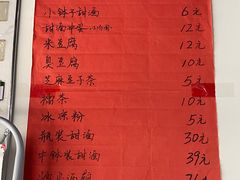 小钵子甜酒 6元
甜酒冲蛋 12元
米豆腐 12元
臭豆腐 10元
芝麻豆子茶 5元
擂茶 10元
冰凉粉 5元
瓶装甜酒 30元
中钵装甜酒 39元